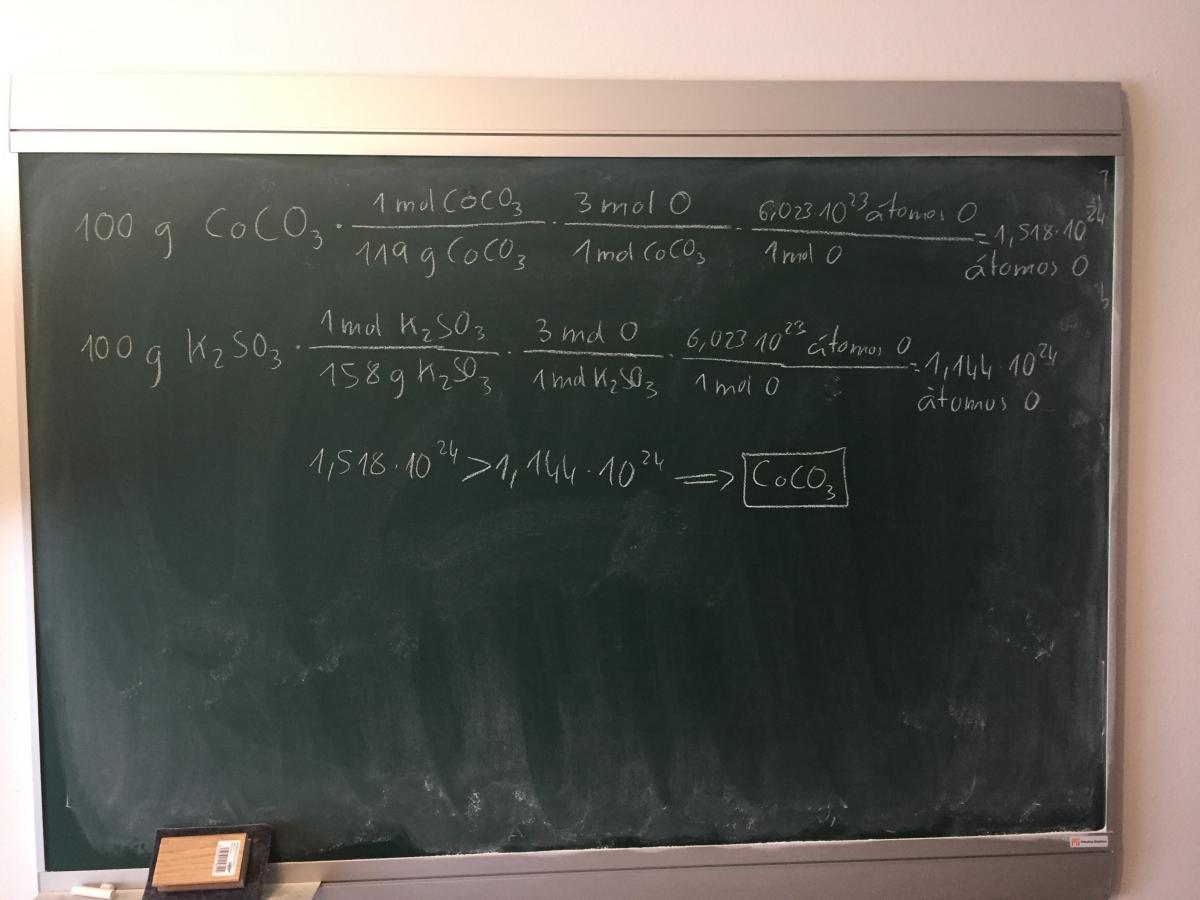 100 g CoCO₃ · 1 mol CoCO₃ / 119 g CoCO₃ · 3 mol O / 1 mol CoCO₃ · 6,023·10²³ átomos O / 1 mol O = 1,518·10²⁴
átomos O
100 g K₂SO₃ · 1 mol K₂SO₃ / 158 g K₂SO₃ · 3 mol O / 1 mol K₂SO₃ · 6,023·10²³ átomos O / 1 mol O = 1,144·10²⁴
átomos O
1,518·10²⁴ > 1,144·10²⁴ ⇒ CoCO₃